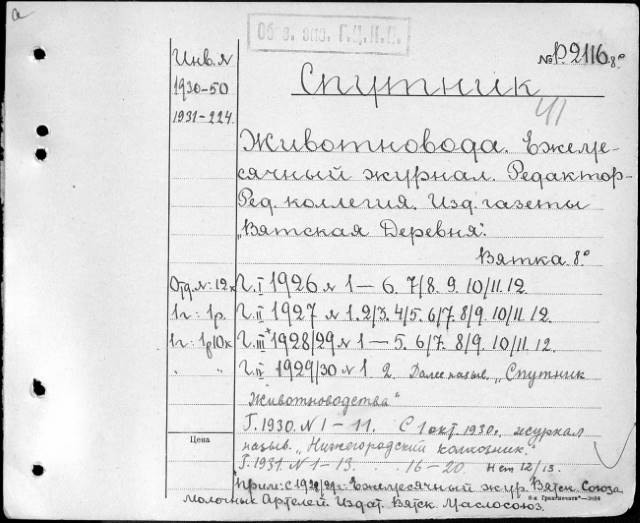 а
Об. э. эаз. Г.Ц.К.П.
№ Р.2116 8°
Инв. №
1930-50
1931-224.
Спутник
41
Животновода. Ежеме-
сячный журнал. Редактор-
Ред. коллегия. Изд. газеты
„Вятская Деревня".
Вятка. 8°
Отд. №: 12к Г. I 1926 № 1—6. 7/8. 9. 10/11. 12.
1г: 1р. Г. II 1927 № 1. 2/3. 4/5. 6/7. 8/9. 10/11. 12.
1г: 1р10к Г. III* 1928/29 № 1—5. 6/7. 8/9. 10/11. 12.
" " Г. IV 1929/30 № 1. 2. Далее назыв. „Спутник
Животноводства"
Г. 1930. № 1-11. С 1 окт. 1930г. журнал
Цена
назыв. „Нижегородский колхозник."
Г. 1931 № 1-13. 16-20. Нет 12/13.
*Прим: С 1928/29г: Ежемесячный жур. Вятск. Союза
молочных Артелей. Издат. Вятск. Маслосоюз.